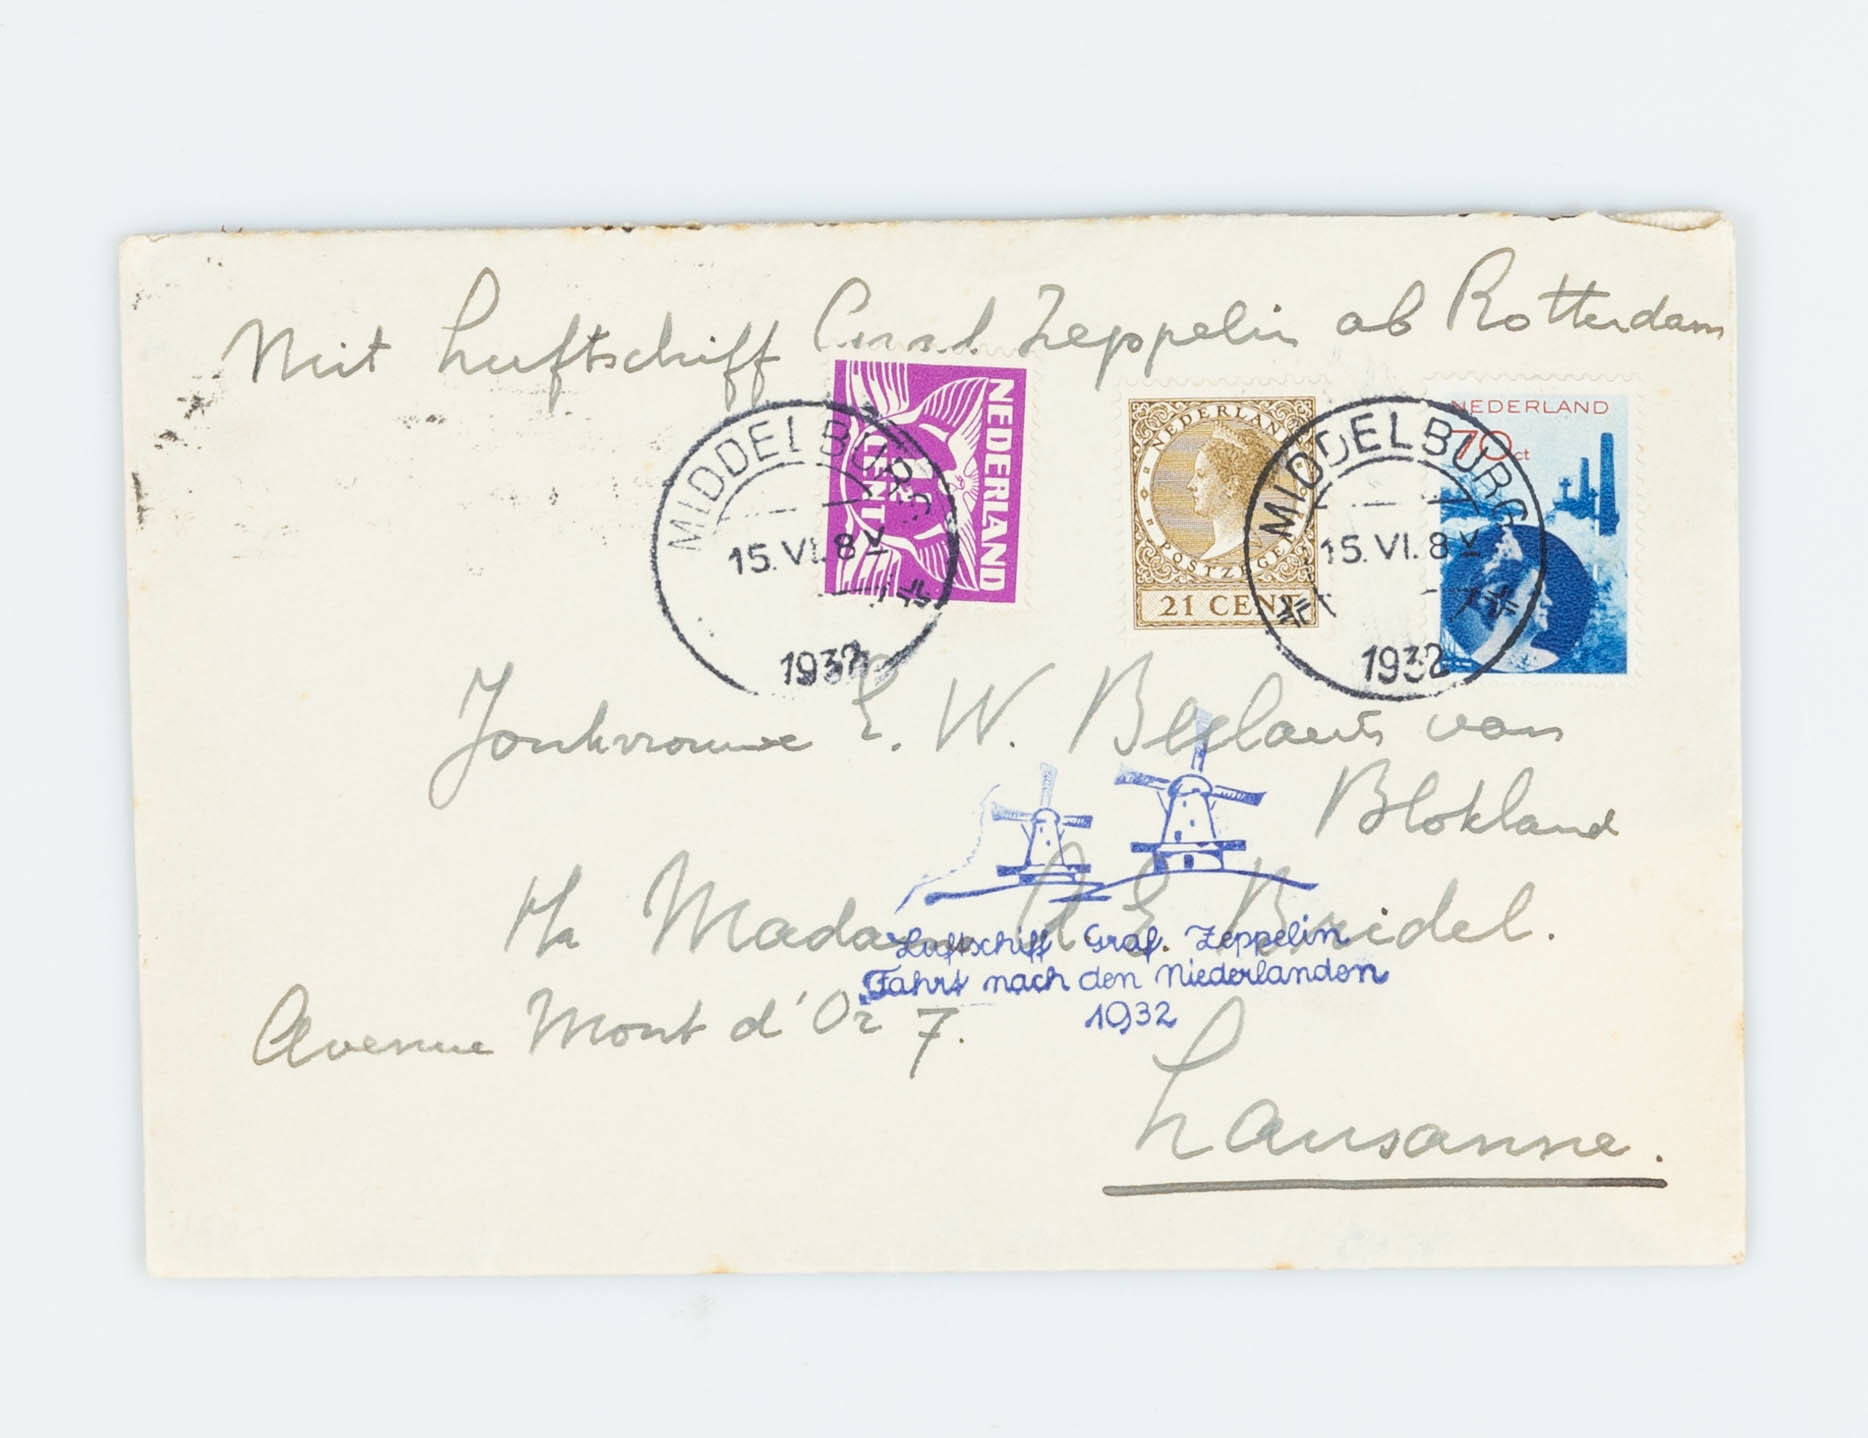 Mit Luftschiff Graf Zeppelin ab Rotterdam
NEDERLAND
CENT
NEDERLAND
POSTZEGEL
21 CENT
NEDERLAND
70 ct
MIDDELBURG
15.VI.8V
1932
MIDDELBURG
15.VI.8V
1932
Jonkvrouwe E. W. Beelaerts van
Blokland
Madame E Bridel.
Luftschiff Graf. Zeppelin
Fahrt nach den Niederlanden
1932
Avenue Mont d'Or 7.
Lausanne.